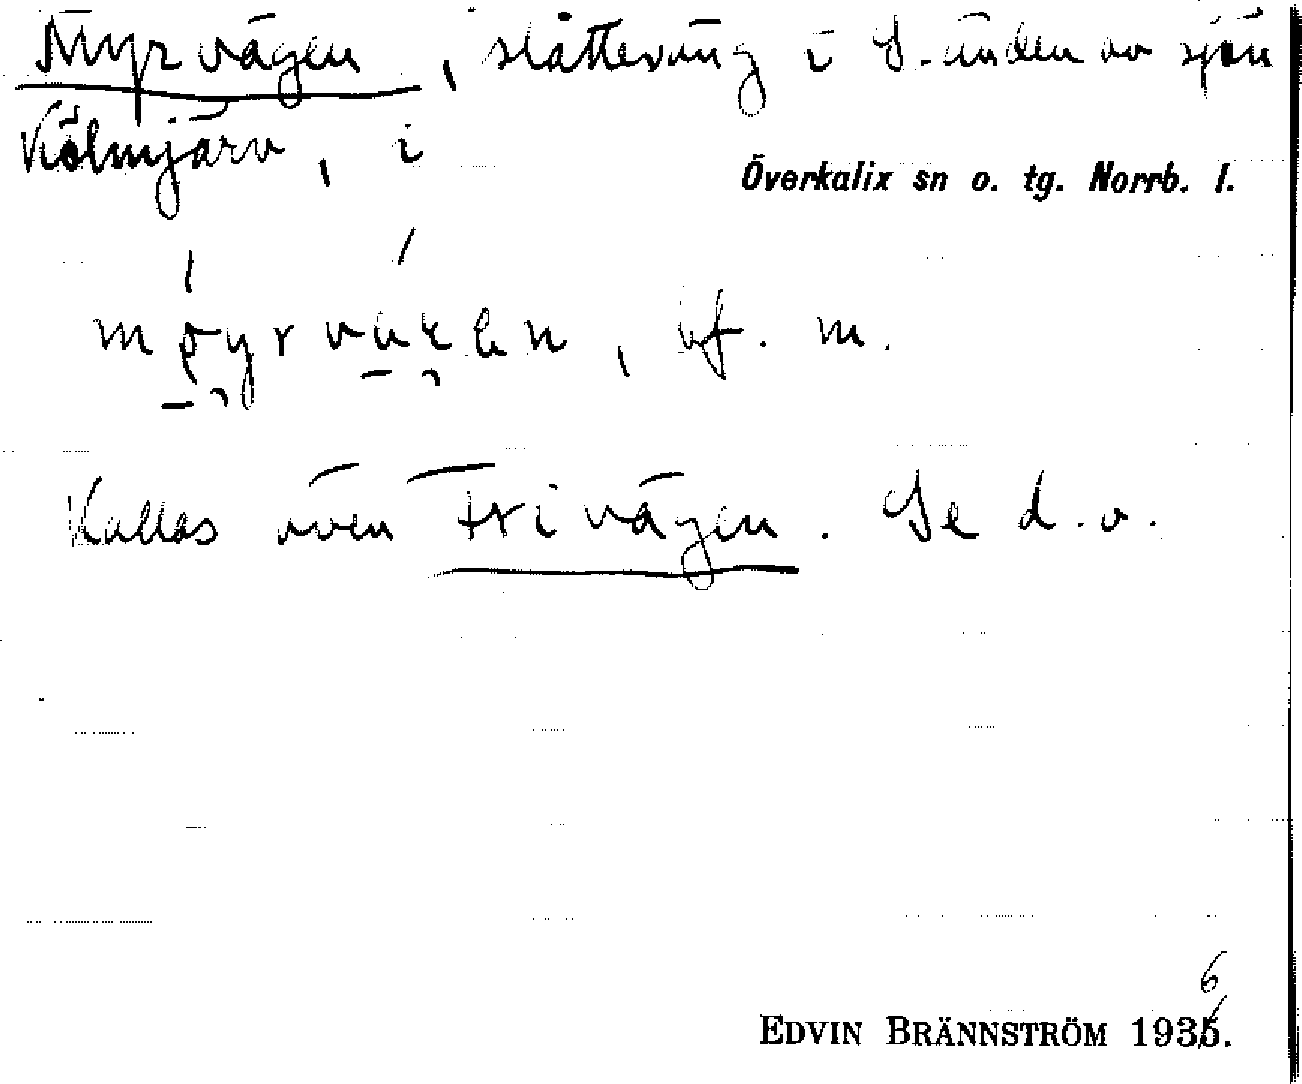 Myrvägen, slåttesving i S.änden av sjön
Kölmjärv, i
Överkalix sn o. tg. Norrb. l.
, bf. m.
Kallas även Frivägen. Se d.o.
6
EDVIN BRÄNNSTRÖM 1935.